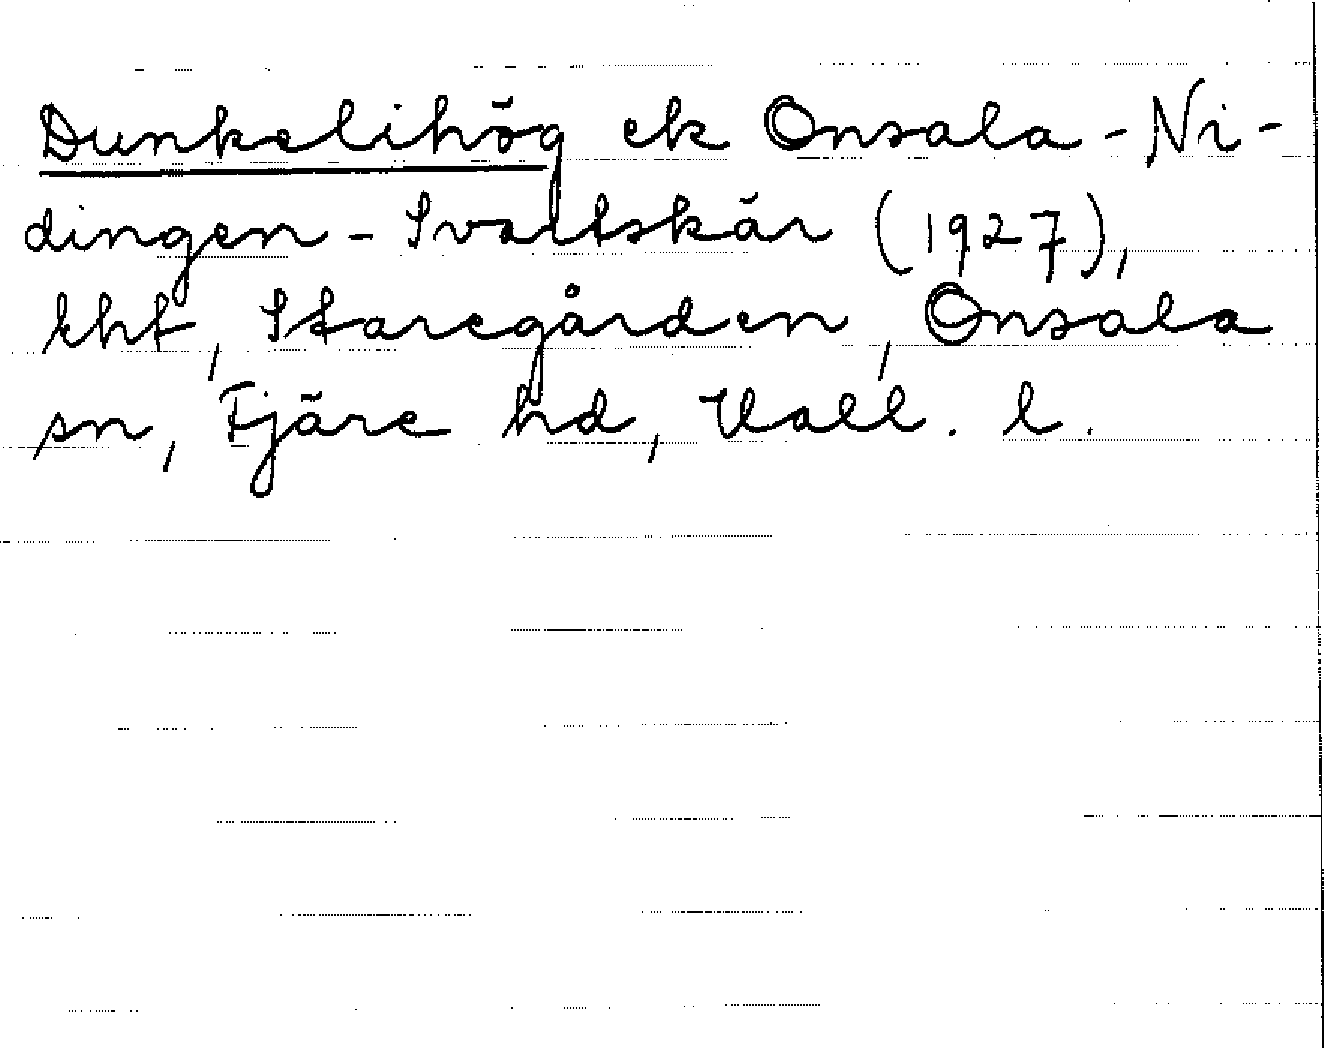 Dunkelihög ek Onsala - Ni-
dingen - Svaltskär (1927),
khf, Staregården, Onsala
sn, Fjäre hd, Hall. l.